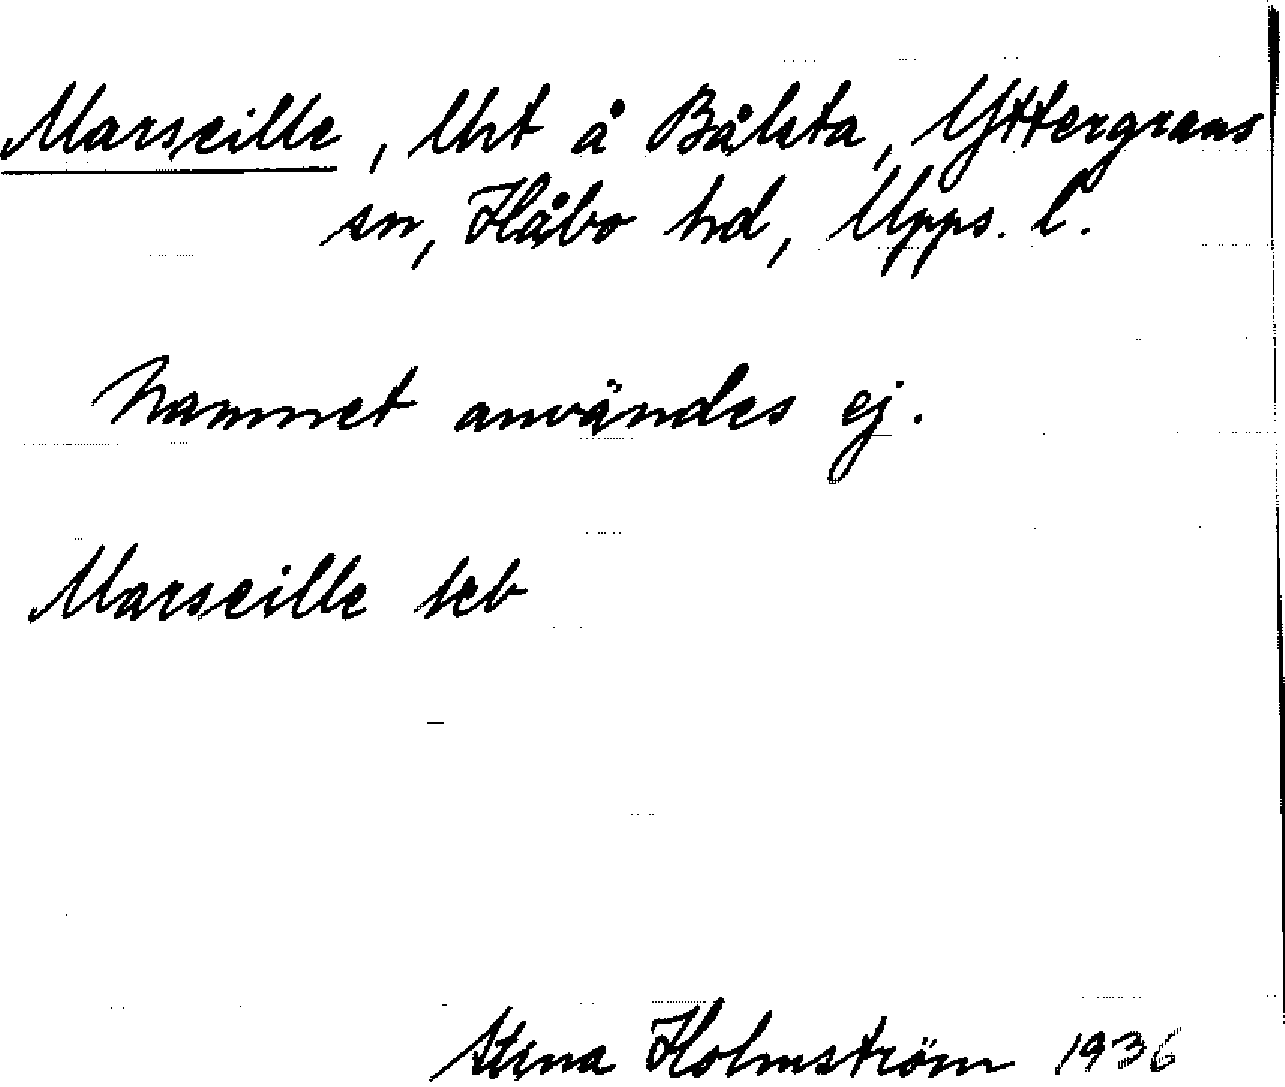 Marseille, lht å Bålsta, Yttergrans
sn, Håbo hd, Upps. l.
Namnet användes ej.
Marseille
Stina Holmström 1936